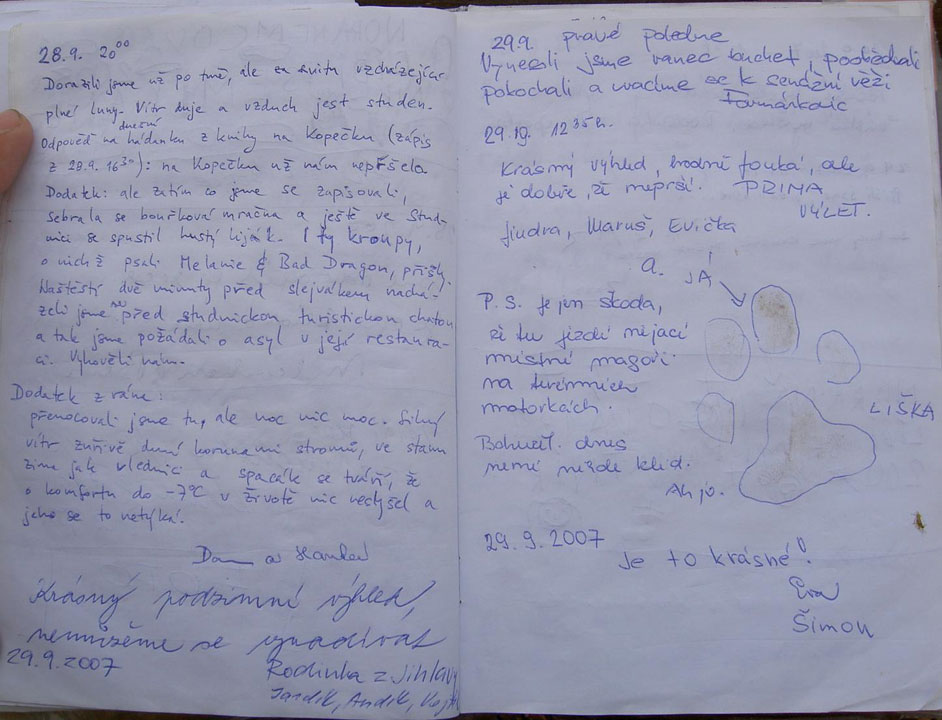 28.9. 20⁰⁰
Dorazili jsme už po tmě, ale za svitu vzcházející
plné luny. Vítr duje a vzduch jest studen.
dnešní
Odpověď na hádanku z knihy na Kopečku (zápis
z 28.9. 16³⁰): na Kopečku už nám nepršelo.
Dodatek: ale zatím co jsme se zapisovali,
sebrala se bouřková mračna a ještě ve Stud-
nici se spustil hustý liják. I ty kroupy,
o nichž psali Melanie & Bad Dragon, přišly.
Naštěstí dvě minuty před slejvákem nachá-
zeli jsme se před studnickou turistickou chatou
a tak jsme požádali o asyl v její restaura-
ci. Vyhověli nám.
Dodatek z rána:
přenocovali jsme tu, ale noc nic moc. Silný
vítr zuřivě duní korunami stromů, ve stanu
zima jak v lednici a spacák se tváří, že
o komfortu do -7°C v životě nic neslyšel a
jeho se to netýká.
a Hanka
Krásný podzimní výhled,
nemůžeme se vynadívat
29.9.2007
Rodinka z Jihlavy
Jardík, Andík,
29.9. pravé poledne
Vynesli jsme vanec buchet, poobědvali
pokochali a vracíme se k
Formánkovic
29.19. 12³⁵h.
Krásný výhled, hodně fouká, ale
je dobře, že neprší. PRIMA
VÝLET.
Jindra, Maruš, Evička
a.
JÁ
P.S. Je jen škoda,
že tu jezdí nějací
místní magoři
na terénních
motorkách.
LIŠKA
Bohužel dnes
není nikde klid.
Ah jo.
29.9.2007
Je to krásné!
Eva
Šimon